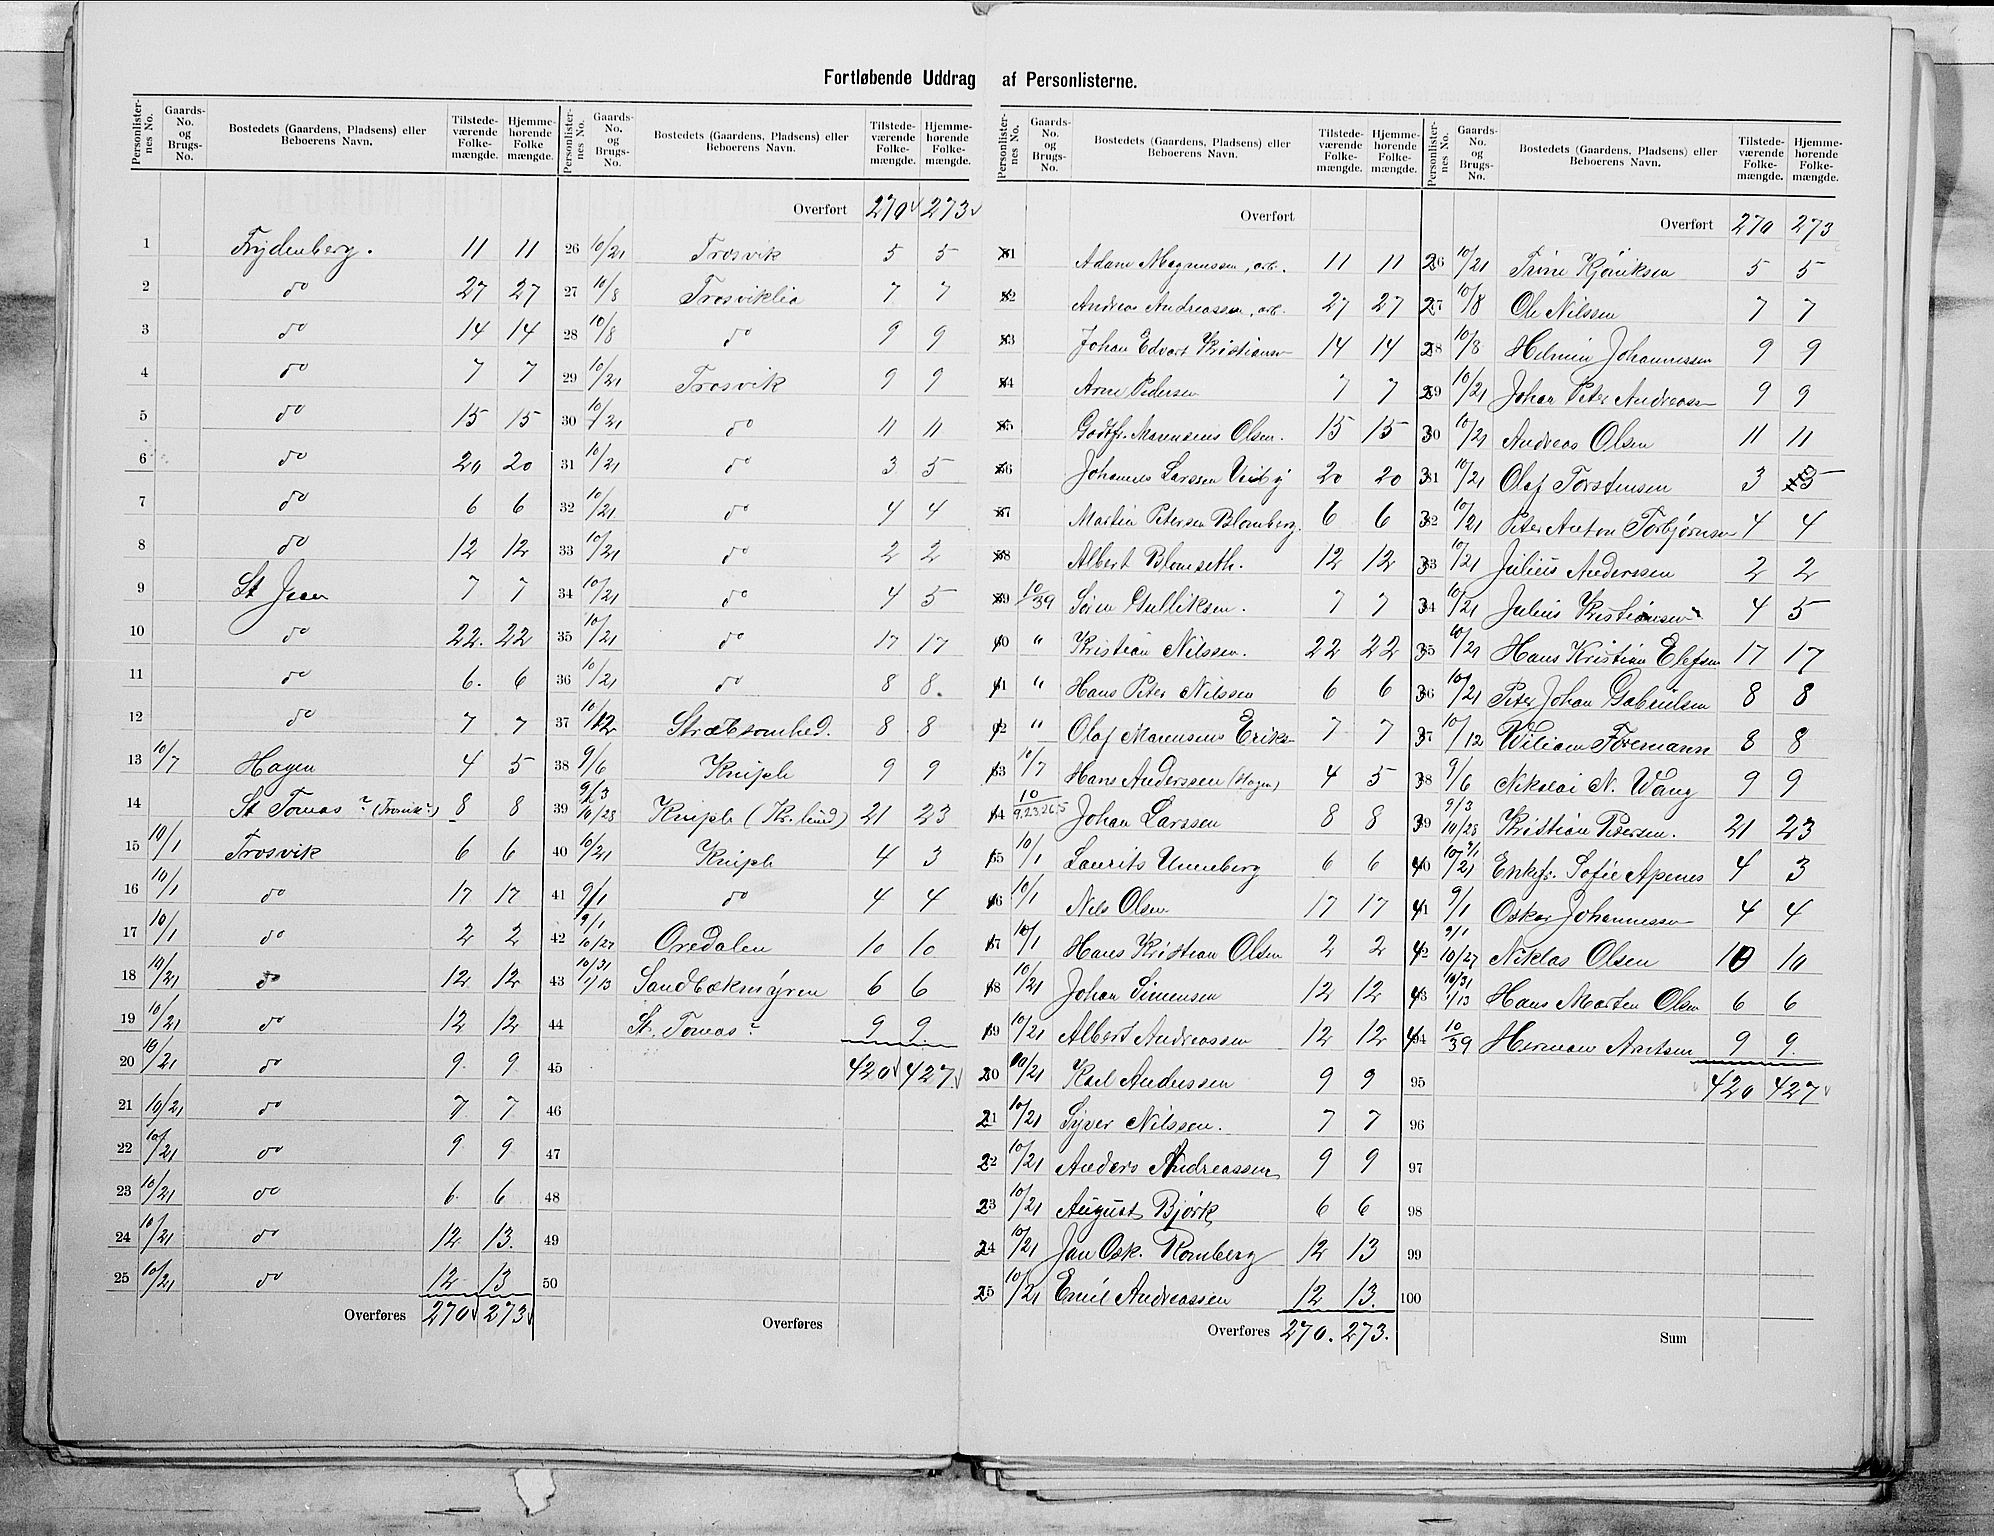 Fortløbende Uddrag af Personlisterne.
Personlisternes No. | Gaards-No. og Brugs-No. | Bostedets (Gaardens, Pladsens) eller Beboerens Navn. | Tilstedeværende Folkemængde. | Hjemmehørende Folkemængde.
1 Frydenberg. 11 11
2 do 27 27
3 do 14 14
4 do 7 7
5 do 15 15
6 do 20 20
7 do 6 6
8 do 12 12
9 St Jean 7 7
10 do 22. 22
11 do 6. 6
12 do 7 7
13 10/7 Hagen 4 5
14 St Tomas ? 8 8
15 10/1 Trosvik 6 6
16 10/1 do 17 17
17 10/1 do 2 2
18 10/21 do 12 12
19 10/21 do 12 12
20 10/21 do 9 9
21 10/21 do 7 7
22 10/21 do 9 9
23 10/21 do 6 6
24 10/21 do 12 13.
25 10/21 do 12 13
Overføres 270 273
Personlisternes No. | Gaards-No. og Brugs-No. | Bostedets (Gaardens, Pladsens) eller Beboerens Navn. | Tilstedeværende Folkemængde. | Hjemmehørende Folkemængde.
Overført 270 273
26 10/21 Trosvik 5 5
27 10/8 Trosviklia 7 7
28 10/8 do 9 9
29 10/21 Trosvik 9 9
30 10/21 do 11 11
31 10/21 do 3 5
32 10/21 do 4 4
33 10/21 do 2 2
34 10/21 do 4 5
35 10/21 do 17 17
36 10/21 do 8 8.
37 10/12 Stræbsomhed. 8 8
38 9/6 Kniple 9 9
39 9/3 10/28 Kniple (Kr. lund) 21 23
40 10/21 Kniple 4 3
41 9/1 do 4 4
42 9/1 10/27 Oredalen 10 10
43 10/31 1/13 Sandbækmyren 6 6
44 St. Tomas ? 9 9.
45 420 427
46
47
48
49
50
Overføres
Personlisternes No. | Gaards-No. og Brugs-No. | Bostedets (Gaardens, Pladsens) eller Beboerens Navn. | Tilstedeværende Folkemængde. | Hjemmehørende Folkemængde.
Overført
1 Adam Magnussen, arb. 11 11
2 Andreas Andreassen, arb. 27 27
3 Johan Edvart Kristiansen 14 14
4 Arne Pedersen 7 7
5 Godtfr. Marensius Olsen. 15 15
6 Johannes Larssen Viiby 20 20
7 Martin Petersen Blomberg. 6 6
8 Albert Blomseth. 12 12
9 10/39 Søren Gulliksen. 7 7
10 " Kristian Nilssen. 22 22
11 " Hans Peter Nilssen 6 6
12 " Olaf Marensius Eriks- 7 7
13 10/7 Hans Anderssen (Hagen) 4 5
14 10/9.23.26.5 Johan Larssen 8 8
15 10/1 Laurits Unneberg 6 6
16 10/1 Nils Olsen. 17 17
17 10/1 Hans Kristian Olsen 2 2
18 10/21 Johan Simensen 12 12
19 10/21 Albert Andreassen 12 12
20 10/21 Karl Anderssen 9 9
21 10/21 Syver Nilssen. 7 7
22 10/21 Anders Andreassen 9 9
23 10/21 August Bjørk 6 6
24 10/21 Jan Osk. Romberg 12 13
25 10/21 Emil Andreassen 12 13.
Overføres 270. 273.
Personlisternes No. | Gaards-No. og Brugs-No. | Bostedets (Gaardens, Pladsens) eller Beboerens Navn. | Tilstedeværende Folkemængde. | Hjemmehørende Folkemængde.
Overført 270 273
26 10/21 Trine Kjøniksen 5 5
27 10/8 Ole Nilssen 7 7
28 10/8 Helmin Johannessen 9 9
29 10/21 Johan Peter Andreass- 9 9
30 10/21 Andreas Olsen 11 11
31 10/21 Olaf Torstensen 3 5
32 10/21 Peter Anton Torbjørnsen 4 4
33 10/21 Julius Anderssen 2 2
34 10/21 Julius Kristiansen 4 5
35 10/21 Hans Kristian Elefsen 17 17
36 10/21 Peter Johan Gabrielsen 8 8
37 10/12 Wiliam Foremann 8 8
38 9/6 Nikolai N. Wang 9 9
39 9/3 10/28 Kristian Petersen. 21 23
40 9/1 10/21 Enkefr. Sofie Apenes 4 3
41 9/1 Oskar Johannessen 4 4
42 9/1 10/27 Niklas Olsen 10 10
43 10/31 1/13 Hans Marten Olsen 6 6
44 10/39 Herman Arntsen 9 9.
95 420 427
96
97
98
99
100
Sum